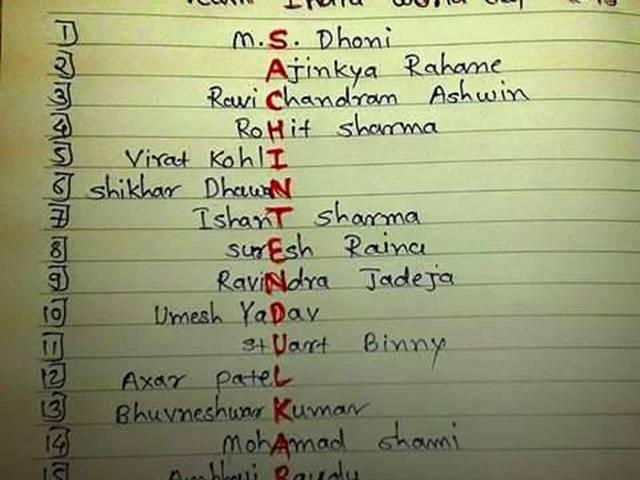 Team India World Cup
1 M.S. Dhoni
2 Ajinkya Rahane
3 Ravi Chandram Ashwin
4 RoHit sharma
5 Virat KohlI
6 shikhar DhawaN
7 IshanT sharma
8 surEsh Raina
9 RaviNdra Jadeja
10 Umesh YaDav
11 stUart Binny
12 Axar pateL
13 Bhuvneshwar Kumar
14 MohAmad shami
15 Ambkaji Rayudu